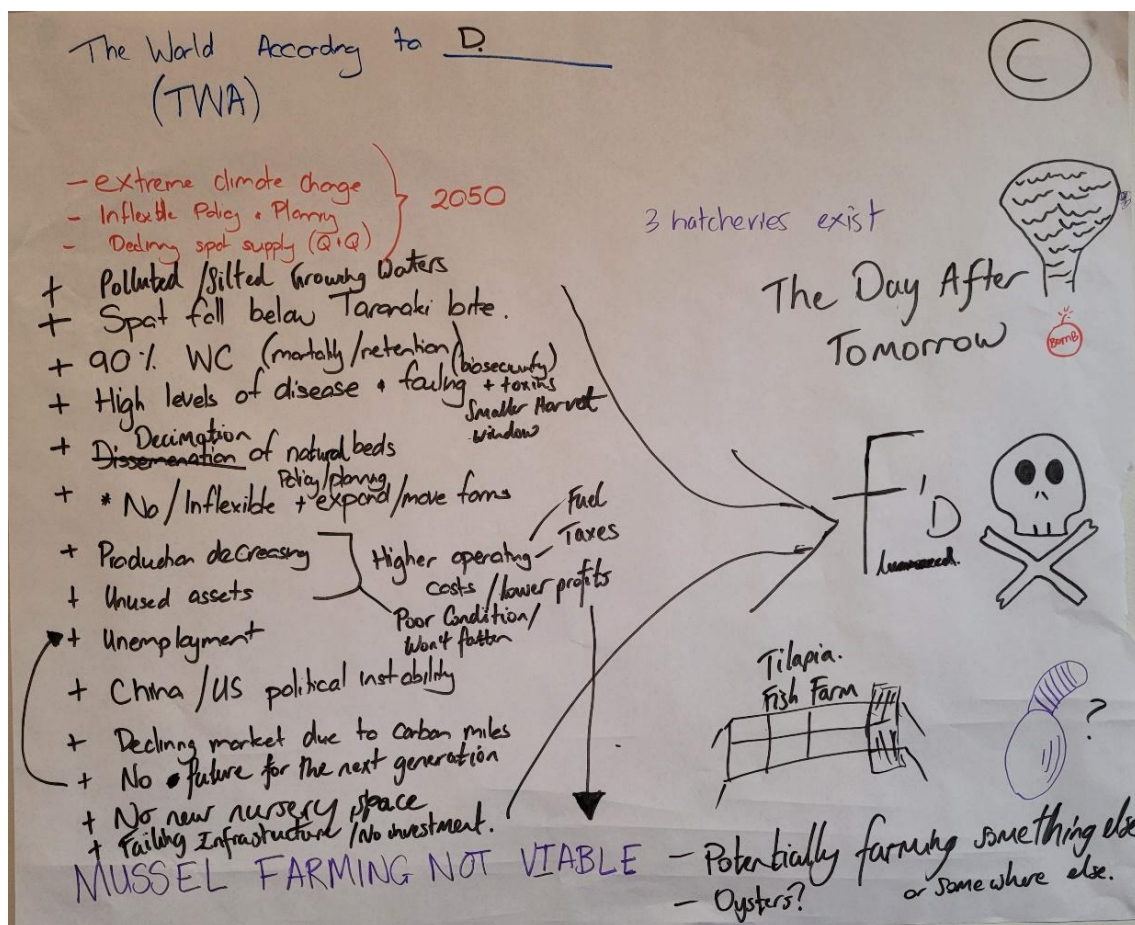 The World According to D.
(TWA)
C
- extreme climate change
- Inflexible Policy + Planning
- Declining spat supply (Q+Q)
2050
3 hatcheries exist
The Day After
Tomorrow
BOMB
+ Polluted /Silted Growing Waters
+ Spat fall below Taranaki bite.
+ 90% WC (mortally/retention)
(biosecurity)
+ High levels of disease + fouling + toxins
Smaller Harvest
window
+ Decimation
Dissemenation of natural beds
Policy/planning
+ * No/Inflexible + expand/move farms
+ Production decreasing
+ Unused assets
Higher operating
costs /lower profits
Fuel
Taxes
Poor Condition/
Won't fatten
+ Unemployment
+ China /US political instability
+ Declining market due to carbon miles
+ No future for the next generation
+ No new nursery space
+ Failing Infrastructure /No investment.
MUSSEL FARMING NOT VIABLE
F'D
Tilapia.
Fish Farm
?
- Potentially farming something else
or somewhere else.
- Oysters?